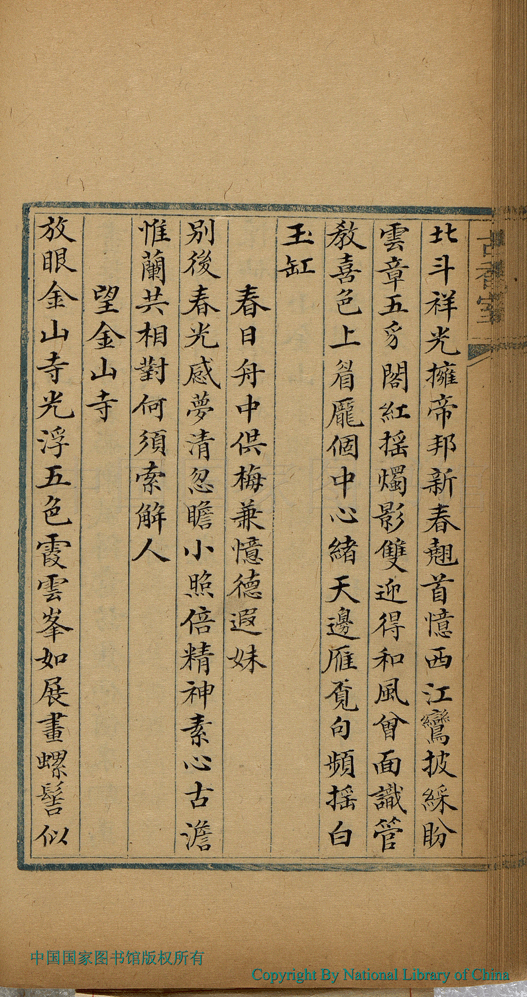 古香室
北斗祥光擁帝邦新春翹首憶西江鸞披綵盼
雲章五多閣紅揺燭影雙迎得和風曾面識管
教喜色上眉龎個中心緒天邊雁覔句頻揺白
玉缸
春日舟中供梅兼憶德遐妹
別後春光感夢清忽瞻小照倍精神素心古澹
惟蘭共相對何須索解人
望金山寺
放眼金山寺光浮五色霞雲峯如展畫螺髻似
中国国家图书馆版权所有
Copyright By National Library of China